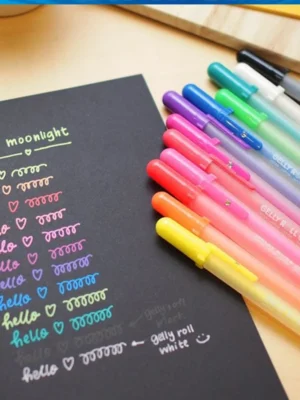 moonlight
lo
llo
llo
ello
hello
hello
hello
hello
gelly roll
hello
gelly roll
white
GELLY ROLL